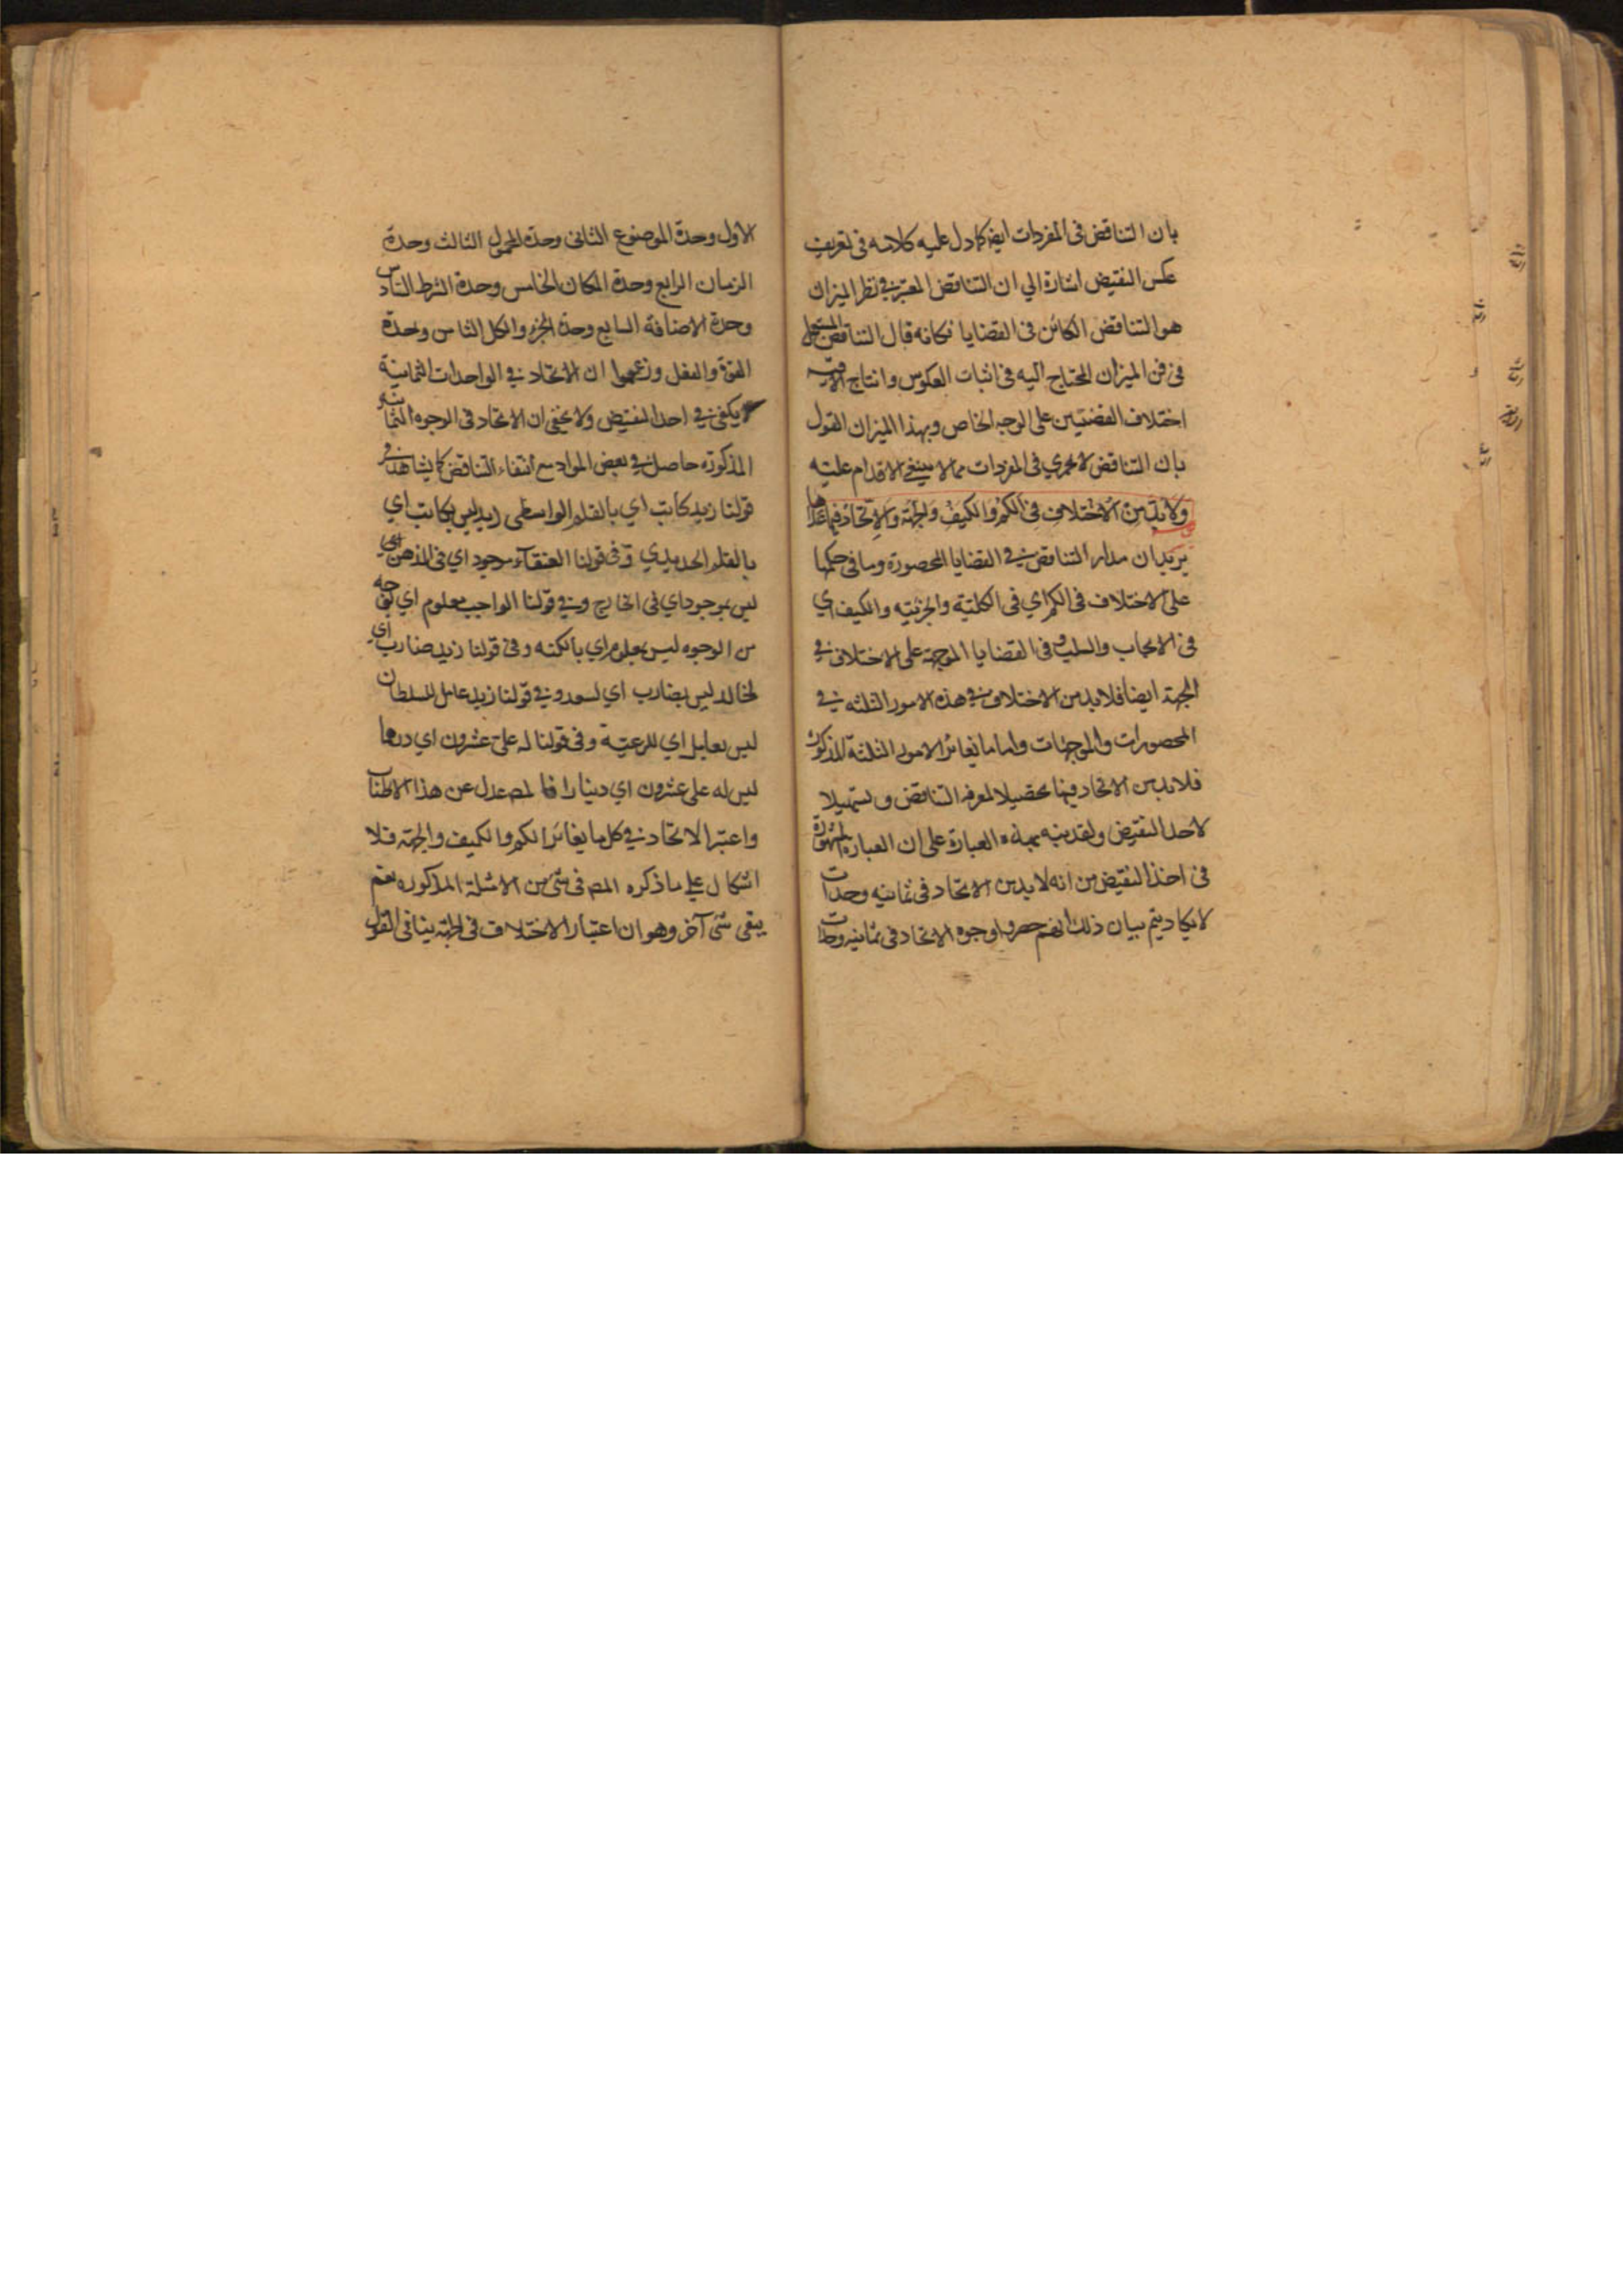 بان التناقض فى المفردات ايضا كما دل عليه كلامه فى تعريف
عكس النقيض اشارة الي ان التناقض المعتبر في نظر الميزان
هو التناقض الكائن فى القضايا فكانه قال التناقض المستعمل
فى فن الميزان المحتاج اليه فى اثبات العكوس وانتاج الاقيسه
اختلاف القضيتين على الوجه الخاص وبهذا الميزان القول
بان التناقض لا يجري فى المفردات مما لا ينبغي الاقدام عليه
ولا بد من الاختلاف فى الكم والكيف والجهة والاتحاد فيما عداها
يريد ان مدار التناقض في القضايا المحصورة وما فى حكمها
على الاختلاف فى الكم اي فى الكلية والجزئيه والكيف اي
فى الايجاب والسلب وفى القضايا الموجهة على الاختلاف في
الجهة ايضا فلا بد من الاختلاف في هذه الامور الثلثه في
المحصورات والموجهات واما ما يغائر الامور الثلثة المذكورة
فلا بد من الاتحاد فيها تحصيلا لمعرفه التناقض وتسهيلا
لاخذ النقيض ولقد نبه بهذه العبارة على ان العباره المشهورة
فى اخذ النقيض من انه لا بد من الاتحاد فى ثمانيه وحدات
لا يكاد يتم بيان ذلك انهم حصروا وجوه الاتحاد فى ثمانيه وحدات
الاول وحدة الموضوع الثانى وحدة المحمول الثالث وحدة
الزمان الرابع وحدة المكان الخامس وحدة الشرط السادس
وحدة الاضافة السابع وحدة الجزء والكل الثامن وحدة
القوة والفعل وزعموا ان الاتحاد في الواحدات الثمانية
يكفى في اخذ النقيض ولا يخفى ان الاتحاد فى الوجوه الثمانية
المذكورة حاصل في بعض المواد مع انتفاء التناقض كما يشاهد فى
قولنا زيد كاتب اي بالقلم الواسطى زيد ليس بكاتب اي
بالقلم الحديدي وفى قولنا العنقاء موجود اي فى الذهن
ليس بموجود اي فى الخارج وفي قولنا الواجب معلوم اي بوجه
من الوجوه ليس بمعلوم اي بالكنه وفى قولنا زيد ضارب اي
لخالد ليس بضارب اي لسعد وفي قولنا زيد عامل للسلطان
ليس بعامل اي للرعية وفى قولنا له على عشرون اي درهما
ليس له على عشرون اي دينارا فالمص عدل عن هذا الاطناب
واعتبر الاتحاد في كل ما يغائر الكم والكيف والجهة فلا
اشكال علي ما ذكره المص فى شئ من الامثلة المذكوره نعم
يبقى شئ آخر وهو ان اعتبار الاختلاف فى الجهة ينافى القول